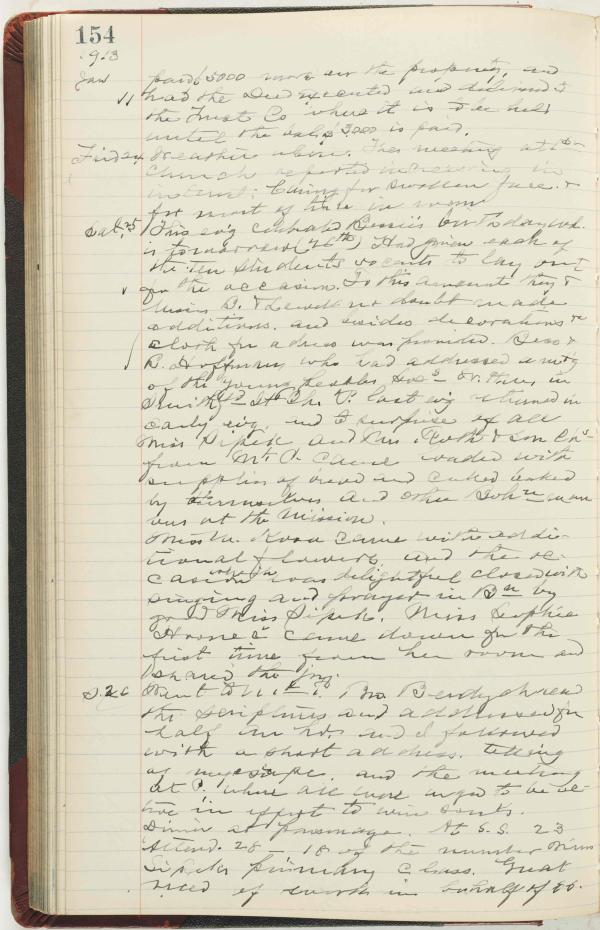 154
1913
Jan paid 5000 more on the property, and
11 had the Deed executed and delivered to
the Trust Co where it is to be held
until the bal. $3000 is paid.
Friday Weather above. The meeting at
Church reported increasing in
interest. Caring for swollen face &
for most of time in room
Sat. 25 This ev'g celebrated Bessie's birthday wh.
is tomorrow (26th) Had given each of
the ten students 50 cents to lay out
for the occasion. To this amount they &
Miss D. & no doubt made
additions, and besides decorations &
cloth for a dress was provided. Bess &
R. Hoffman who had addressed a mt'g
of the young peoples Soc. in
Smithf'd St. Ch. P. last ev'g returned in
early ev'g, and to surprise of all
Miss Sipek and Mrs. Roth & son
from Mt. P. came loaded with
supplies of bread and cakes baked
by themselves and other Boh'n wom
en at the Mission.
Miss M. came with addi-
tional flowers and the oc-
casion which was delightful closed with
singing and prayer in B'n by
good Miss Sipek. Miss Sophie
came down for the
first time from her room and
shared the joy.
S. 26 Went to Bro. read
the scriptures and addressed for
half an hr. and I followed
with a short address. telling
of my escape, and the meeting
at P. where all were urged to be ac-
tive in effort to win souls.
Dinner at parsonage. At S. S. 23
attend. 28 - 18 of the number Miss
Sipeks primary class. Great
need of work in behalf of SS.